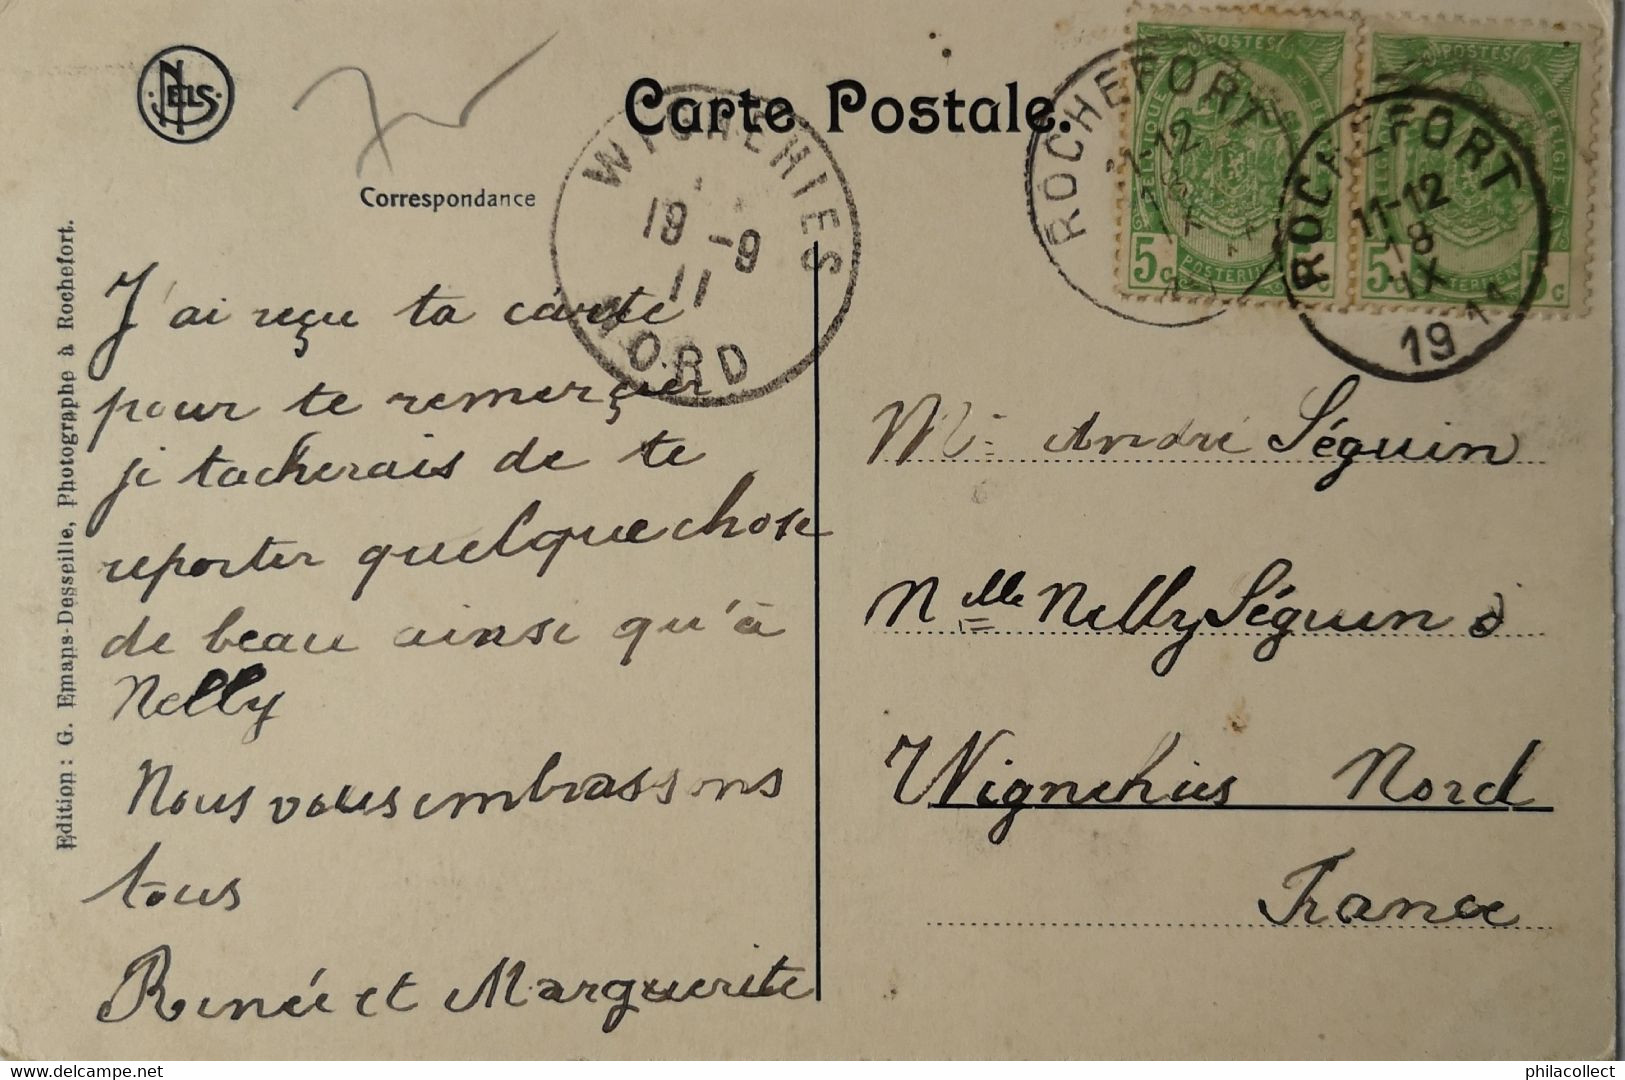 NELS
Carte Postale.
Correspondance
Edition : G. Emaps-Desseille, Photographe à Rochefort.
WIGNEHIES
19 -9
11
NORD
ROCHEFORT
11-12
ROCHEFORT
11-12
18
IX
1911
POSTES
5 c
POSTES
5 c
J'ai reçu ta carte
pour te remerçier
je tacherais de te
reporter quelque chose
de beau ainsi qu'à
Nelly
Nous vous embrassons
tous
Renée et Marguerite
Mr André Séguin
Melle Nelly Séguin à
Wignehies Nord
France
delcampe.net
philacollect